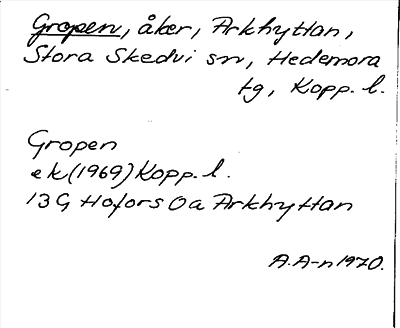 Gropen, åker, Arkhyttan,
Stora Skedvi sn, Hedemora
tg, Kopp. l.
Gropen
ek (1969) Kopp. l.
13G Hofors 0a Arkhyttan
A.A-n 1970.